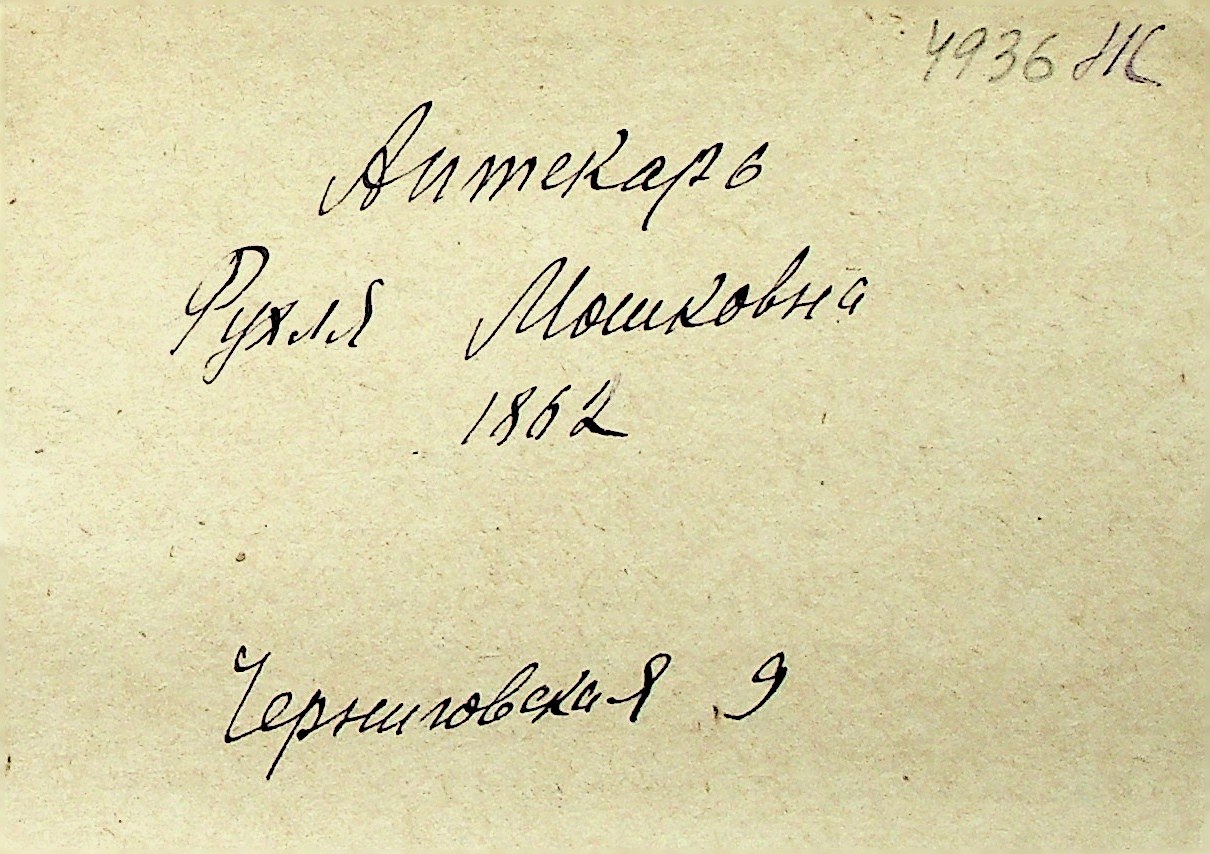 4936 Ж
Аптекарь
Рухля Мошковна
1862
Черниговская 9